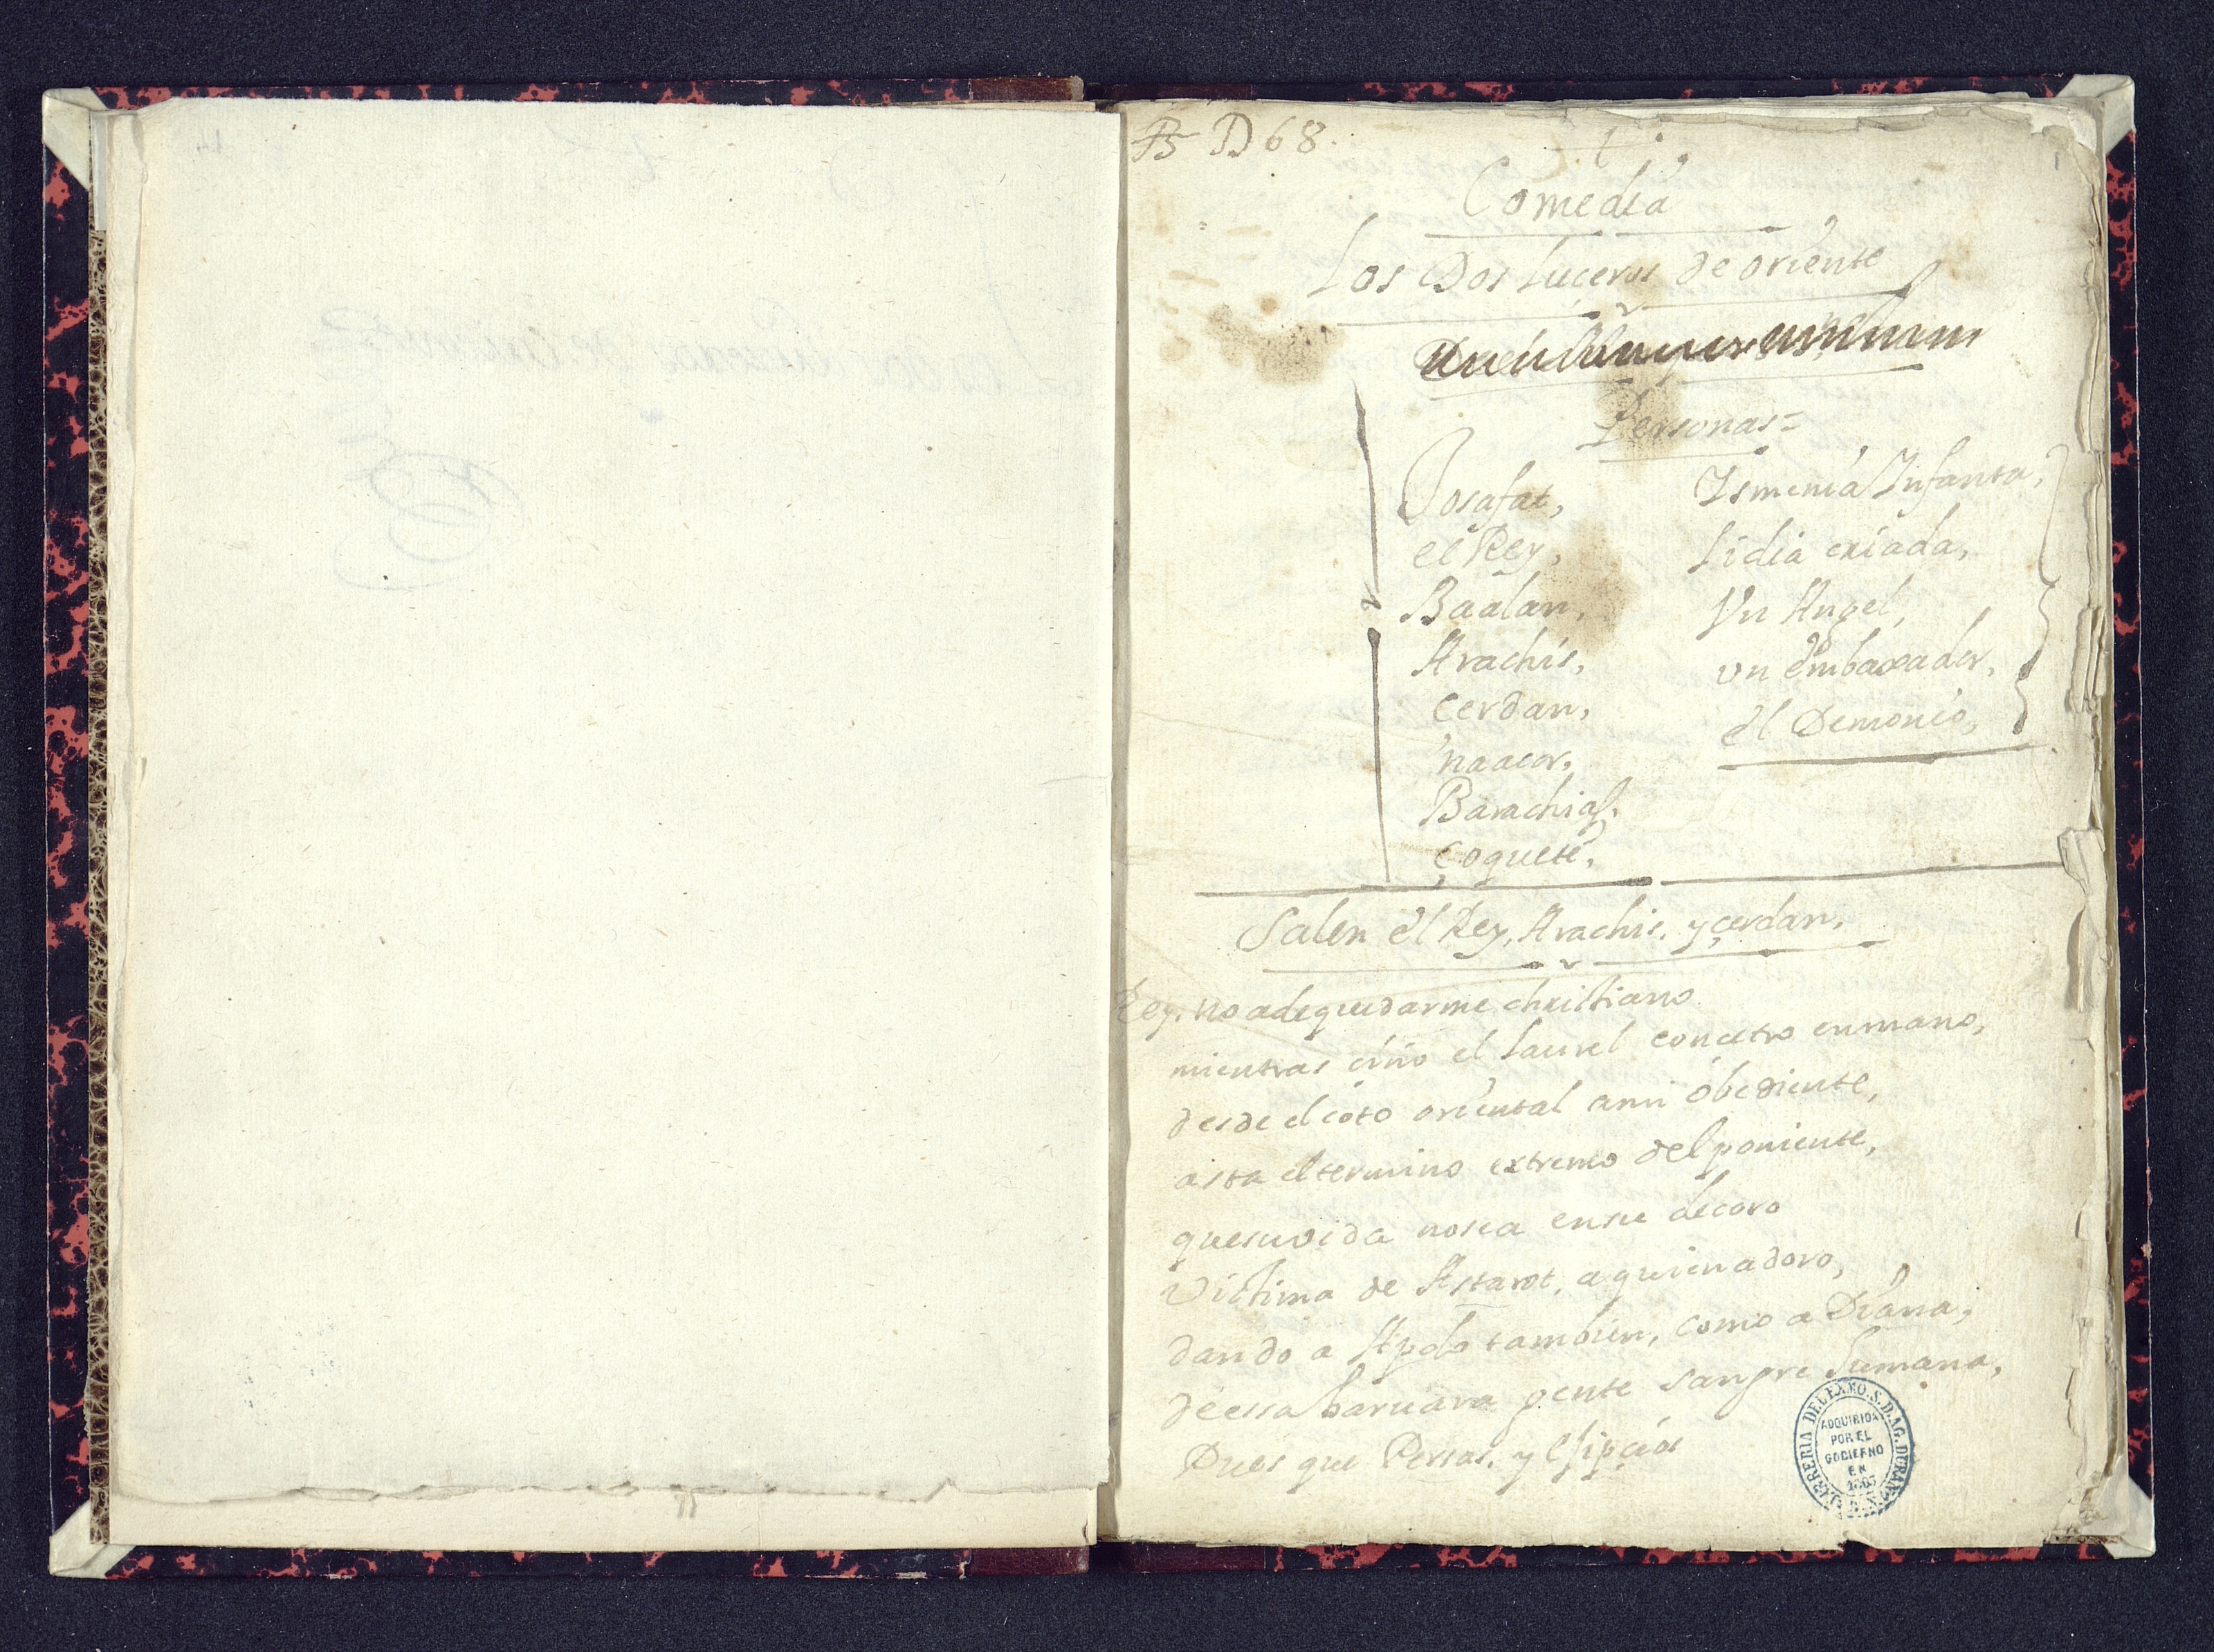 D 68.
Comedia
Los Dos Luceros de oriente
Personas=
Josafat,
el Rey,
Baalan,
Arachis,
Cerdan,
naacor,
Barachias,
Çoquete,
Ismenia Infanta,
Lidia criada,
Vn Angel,
vn embaxador,
el Demonio,
Salen el Rey, Arachis, y çerdan,
Rey. no a de quedarme christiano
mientras ciño el Laurel con cetro en mano,
desde el coto oriental a mi obediente,
asta el termino extremo del poniente,
que su vida no sea en su decoro
victima de Astarot, a quien adoro,
dando a Apolo tambien, como a Diana,
de essa baruara gente sangre humana,
Pues que Persas, y Egipcios
LIBRERIA DEL EXMO. S. D. AG. DURAN
ADQUIRIDA
POR EL
GOBIERNO
EN
1863